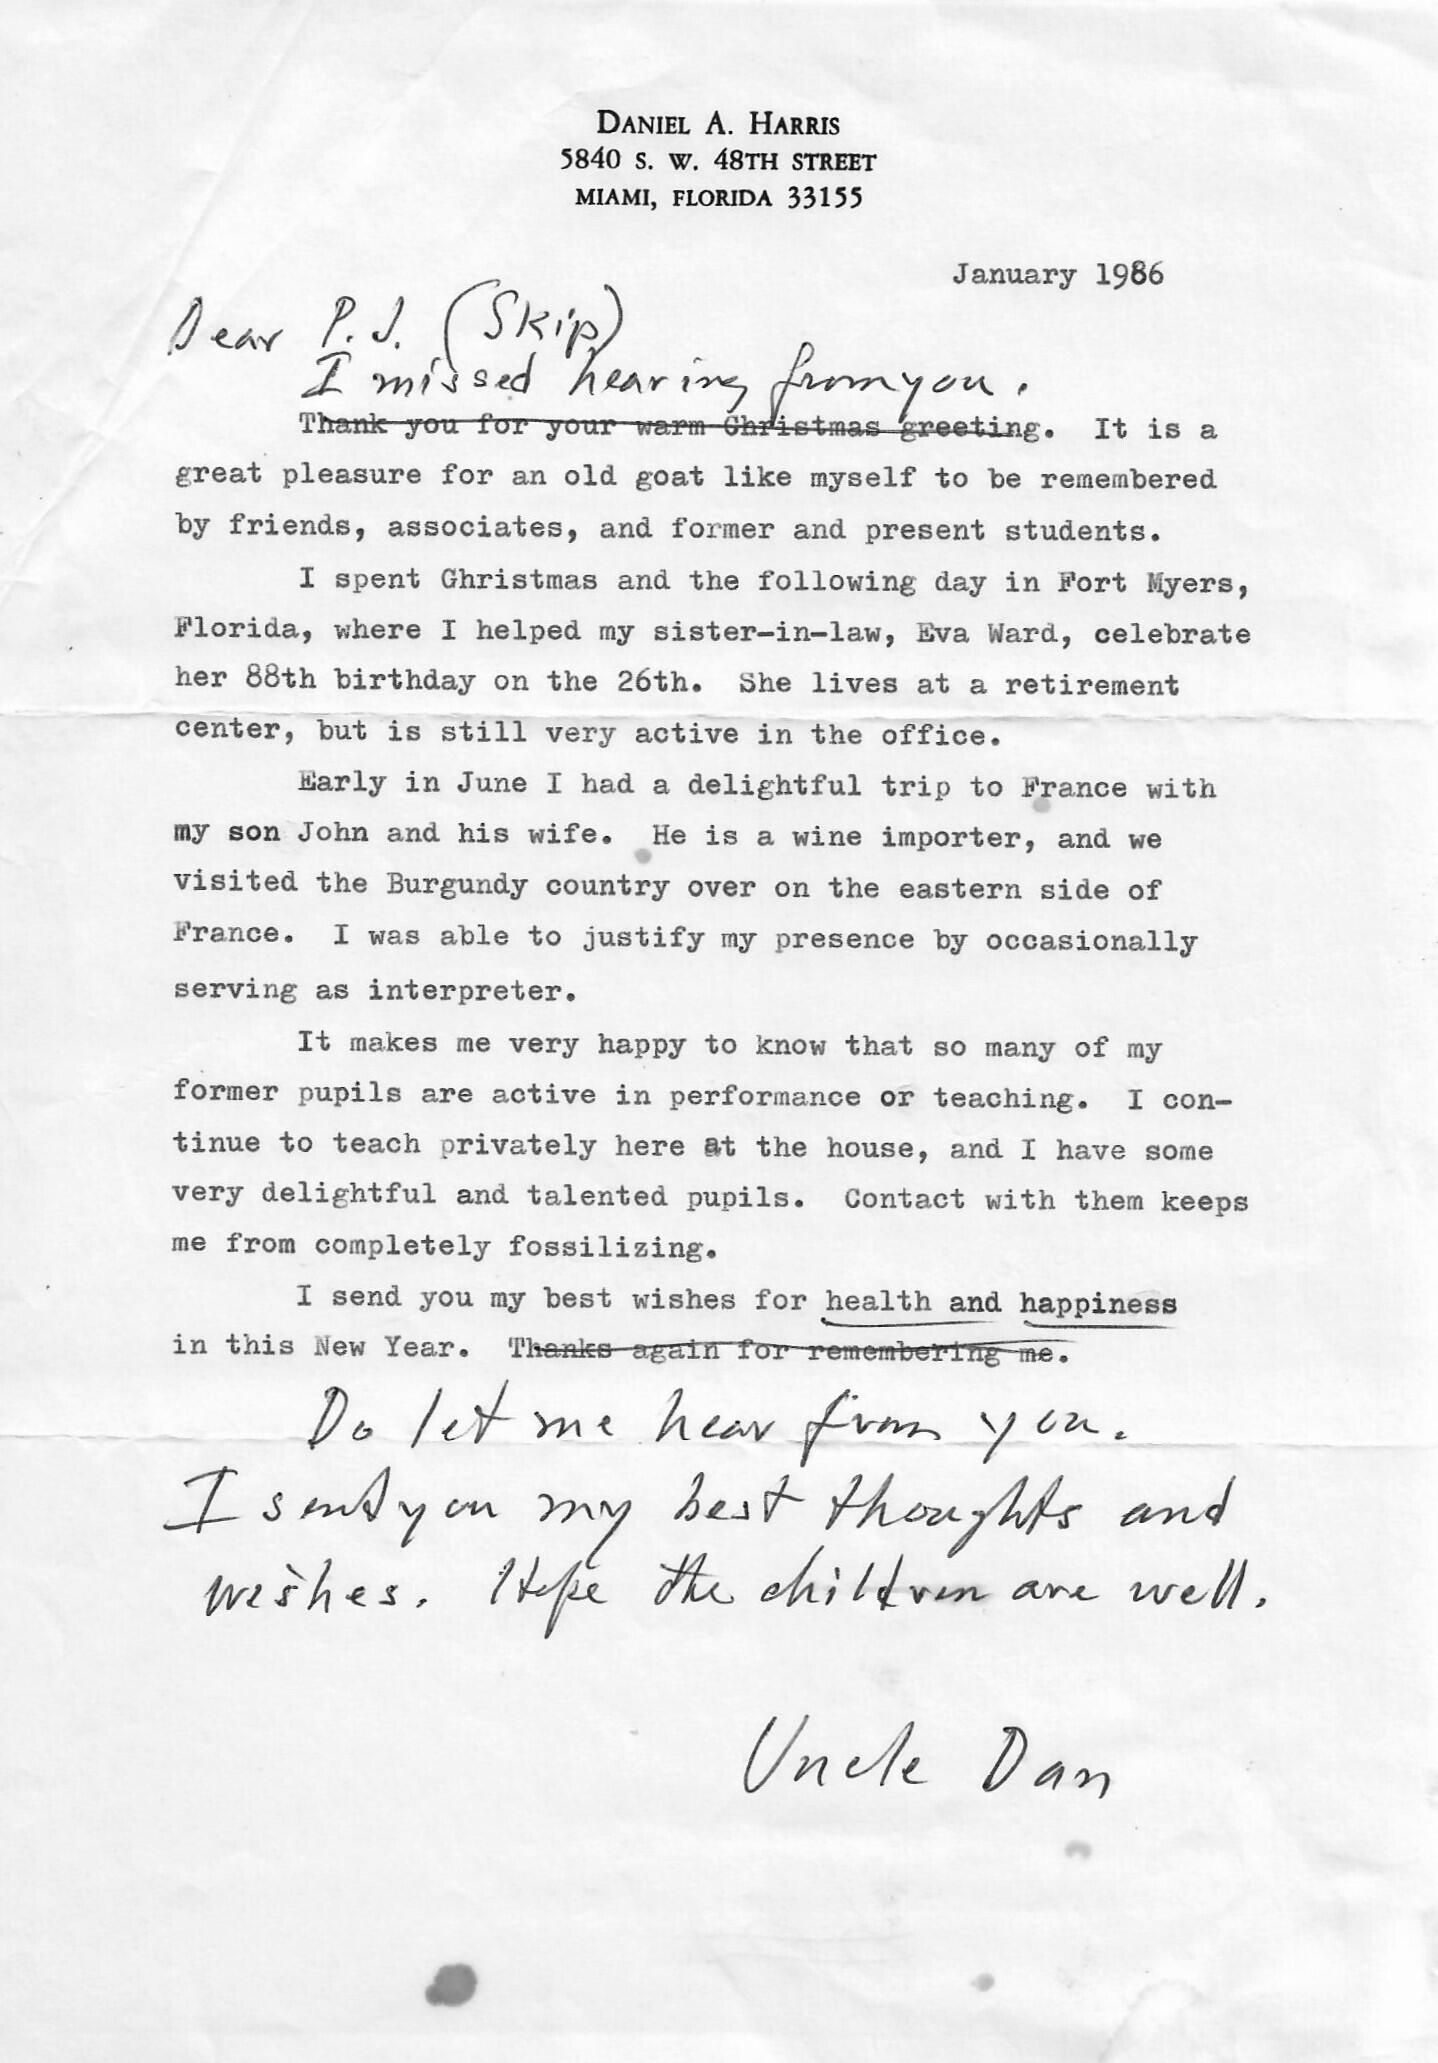 DANIEL A. HARRIS
5840 S. W. 48TH STREET
MIAMI, FLORIDA 33155
January 1986
Dear P.J. (Skip)
I missed hearing from you.
Thank you for your warm Christmas greeting. It is a
great pleasure for an old goat like myself to be remembered
by friends, associates, and former and present students.
I spent Ghristmas and the following day in Fort Myers,
Florida, where I helped my sister-in-law, Eva Ward, celebrate
her 88th birthday on the 26th. She lives at a retirement
center, but is still very active in the office.
Early in June I had a delightful trip to France with
my son John and his wife. He is a wine importer, and we
visited the Burgundy country over on the eastern side of
France. I was able to justify my presence by occasionally
serving as interpreter.
It makes me very happy to know that so many of my
former pupils are active in performance or teaching. I con-
tinue to teach privately here at the house, and I have some
very delightful and talented pupils. Contact with them keeps
me from completely fossilizing.
I send you my best wishes for health and happiness
in this New Year. Thanks again for remembering me.
Do let me hear from you.
I send you my best thoughts and
wishes. Hope the children are well.
Uncle Dan